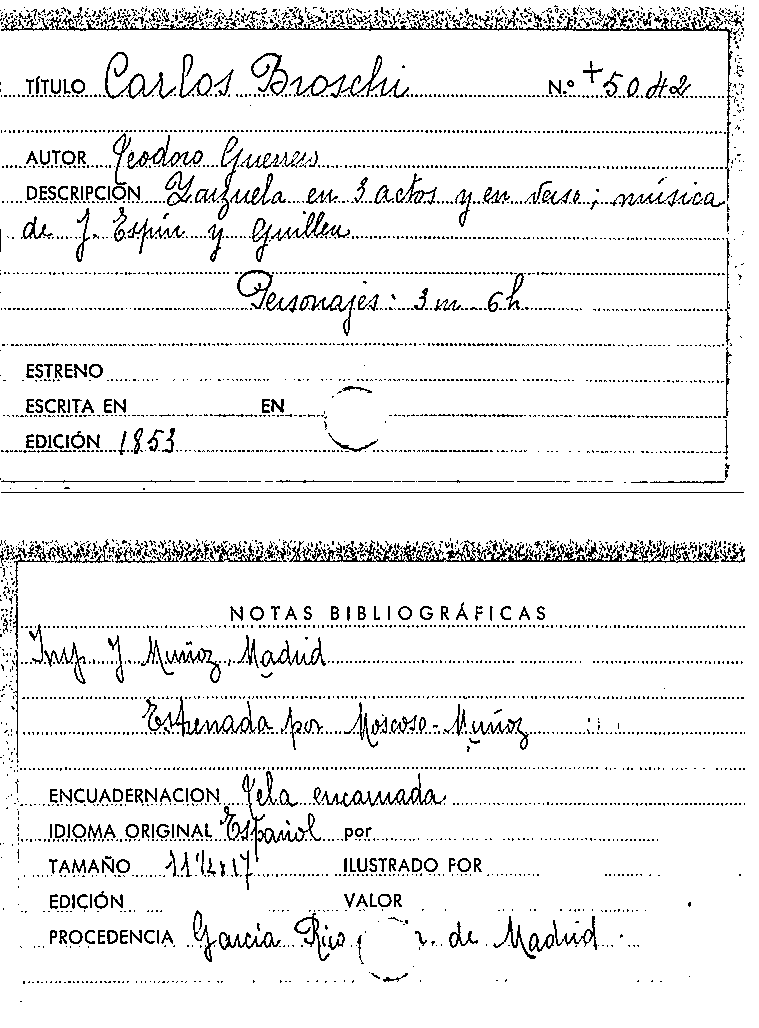 TÍTULO Carlos Broschi N.º +5042
AUTOR Teodoro Guerrero
DESCRIPCIÓN Zarzuela en 3 actos y en verso; música
de J. Espín y Guillen
Personajes: 3 m. 6 h.
ESTRENO
ESCRITA EN EN
EDICIÓN 1853
NOTAS BIBLIOGRÁFICAS
Imp. J Muñoz. Madrid
Estrenada por Moscoso-Muñoz
ENCUADERNACION Tela encarnada
IDIOMA ORIGINAL Español por
TAMAÑO 11½x17
ILUSTRADO FOR
EDICIÓN VALOR
PROCEDENCIA García Rico de Madrid